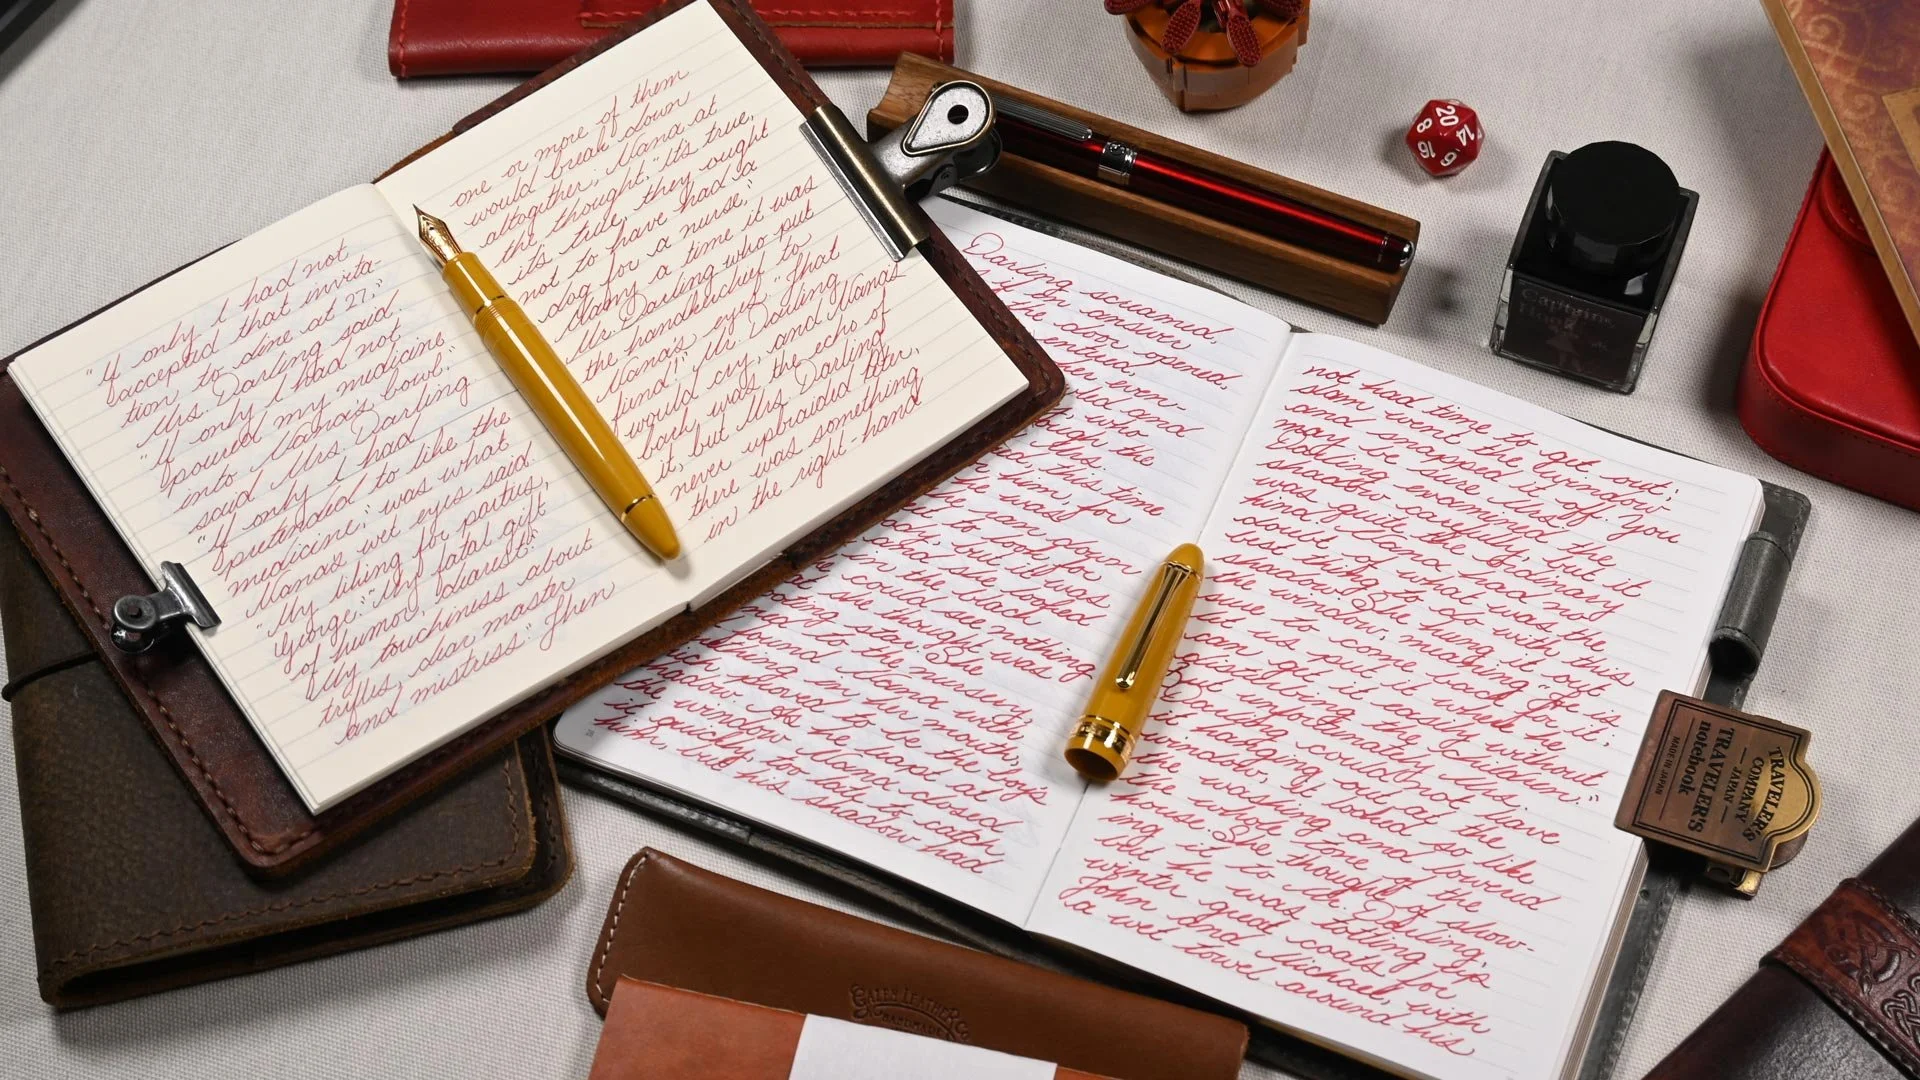 "If only I had not
accepted that invita-
tion to dine at 27,"
Mrs. Darling said.
"If only I had not
poured my medicine
into Nana's bowl."
said Mrs. Darling
"If only I had
pretended to like the
medicine," was what
Nana's wet eyes said.
"My liking for parties,
George." "My fatal gift
of humor, dearest."
"My touchiness about
trifles, dear master
and mistress." Then
one or more of them
would break down
altogether; Nana at
the thought, "It's true,
it's true, they ought
not to have had a
dog for a nurse."
Many a time it was
Mr. Darling who put
the handkerchief to
Nana's eyes. "That
fiend!" Mr Darling
would cry, and Nana's
bark was the echo of
it, but Mrs. Darling
never upbraided Peter,
there was something
in the right-hand
Darling screamed,
as if in answer
the door opened,
entered,
even-
and
who
the
this time
him, for
ran down
to look for
but it was
and she looked
in the black
could see nothing
she thought was
star. She
to the nursery,
in her mouth,
proved to be the boy's
shadow. As he leapt at
the window Nana closed
it quickly, too late to catch
him, but his shadow had
not had time to get out;
slam went the window
and snapped it off. You
may be sure Mrs.
Darling examined the
shadow carefully, but it
was quite the ordinary
kind. Nana had no
doubt of what was the
best thing to do with this
shadow. She hung it out
the window, meaning "He is
sure to come back for it;
let us put it where he
can get it easily without
disturbing the children."
But unfortunately Mrs.
Darling could not leave
it hanging out the
window, it looked so like
the washing and lowered
the whole tone of the
house. She thought of show-
ing it to Mr. Darling,
but he was totting up
winter great coats for
John and Michael, with
a wet towel around his
20
8
14
16
TRAVELER'S
COMPANY
JAPAN
TRAVELER'S
notebook
MADE IN JAPAN
GALEN LEATHER CO.
HANDMADE